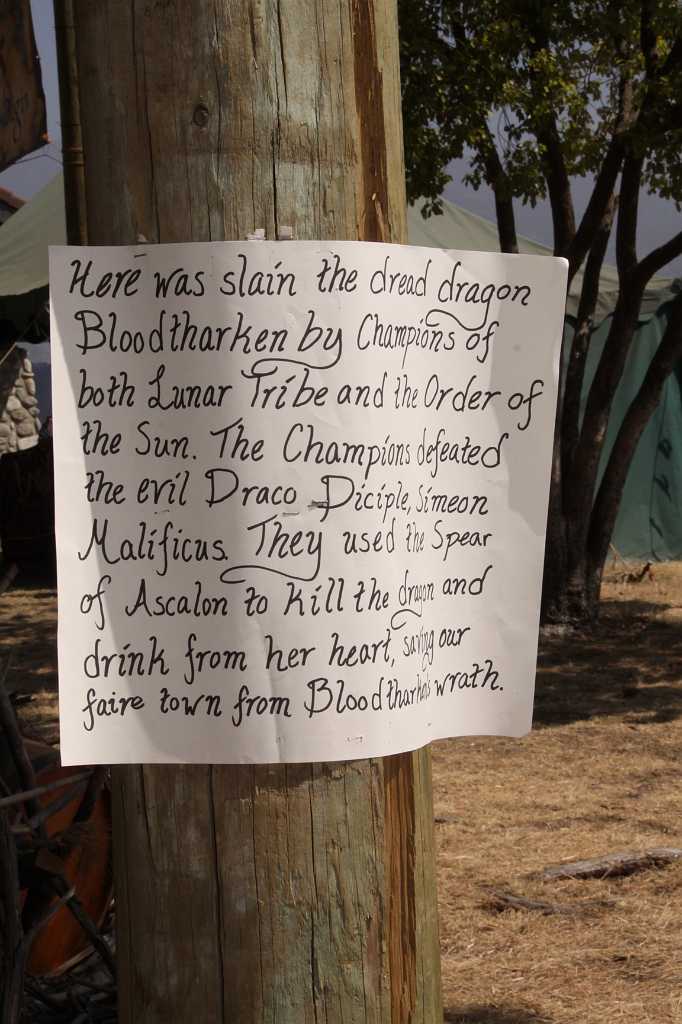 Here was slain the dread dragon
Bloodtharken by Champions of
both Lunar Tribe and the Order of
the Sun. The Champions defeated
the evil Draco Diciple, Simeon
Malificus. They used the Spear
of Ascalon to kill the dragon and
drink from her heart, saving our
faire town from Bloodtharken's wrath.